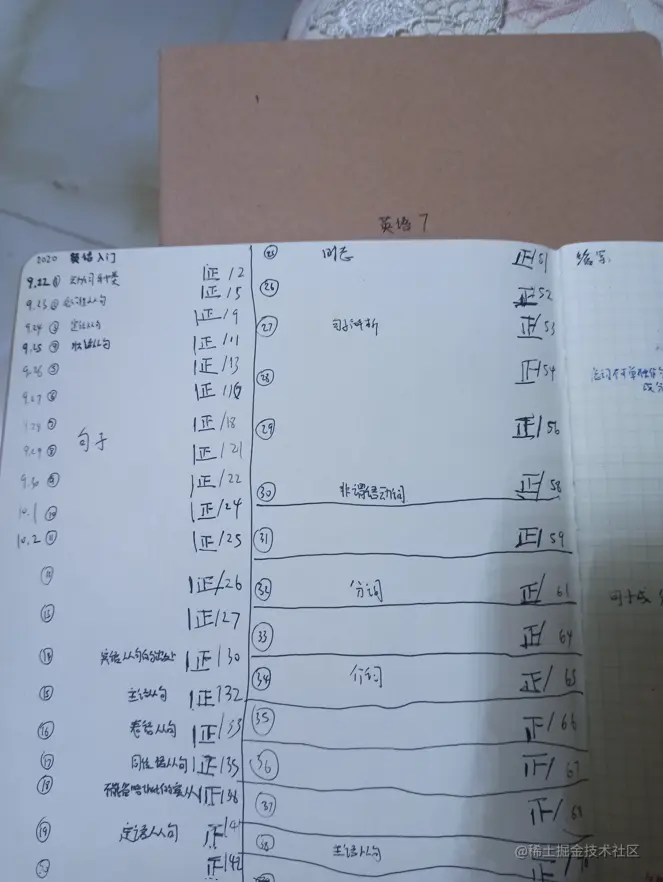 英语7
2020 英语入门
9.22 ① 动词种类 正/2
9.23 ② 正/5
9.24 ③ 定语从句 正/9
9.25 ④ 状语从句 正/11
9.26 ⑤ 正/13
9.27 ⑥ 正/16
⑦ 正/18
9.29 ⑧ 句子 正/21
9.30 ⑨ 正/22
10.1 ⑩ 正/24
10.2 ⑪ 正/25
⑫ 正/26
⑬ 正/27
⑭ 正/30
⑮ 主语从句 正/32
⑯ 表语从句 正/33
⑰ 同位语从句 正/35
⑱ 正/38
⑲ 定语从句 正/41
⑳ 正/42
㉕ 时态 正/51
㉖ 正/52
㉗ 句子评析 正/53
㉘ 正/54
㉙ 正/56
㉚ 非谓语动词 正/58
㉛ 正/59
㉜ 分词 正/61
㉝ 正/64
㉞ 介词 正/65
㉟ 正/66
㊱ 正/67
㊲ 正/68
㊳ 主语从句 正
缩写:
句子成
@稀土掘金技术社区